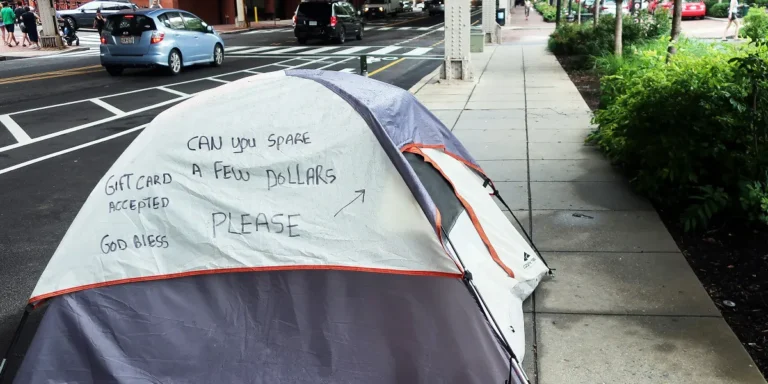 CAN you SPARE
A FEW DOLLARS
PLEASE
GIFT CARD
ACCEPTED
GOD BLESS